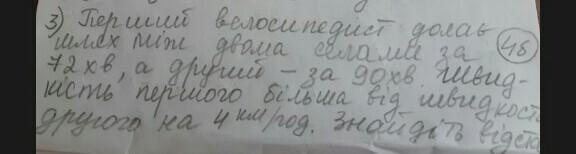 3) Перший велосипедист долає
шлях між двома селами за (4б)
72 хв, а другий – за 90 хв. Швид-
кість першого більша від швидкості
другого на 4 км/год. Знайдіть відста